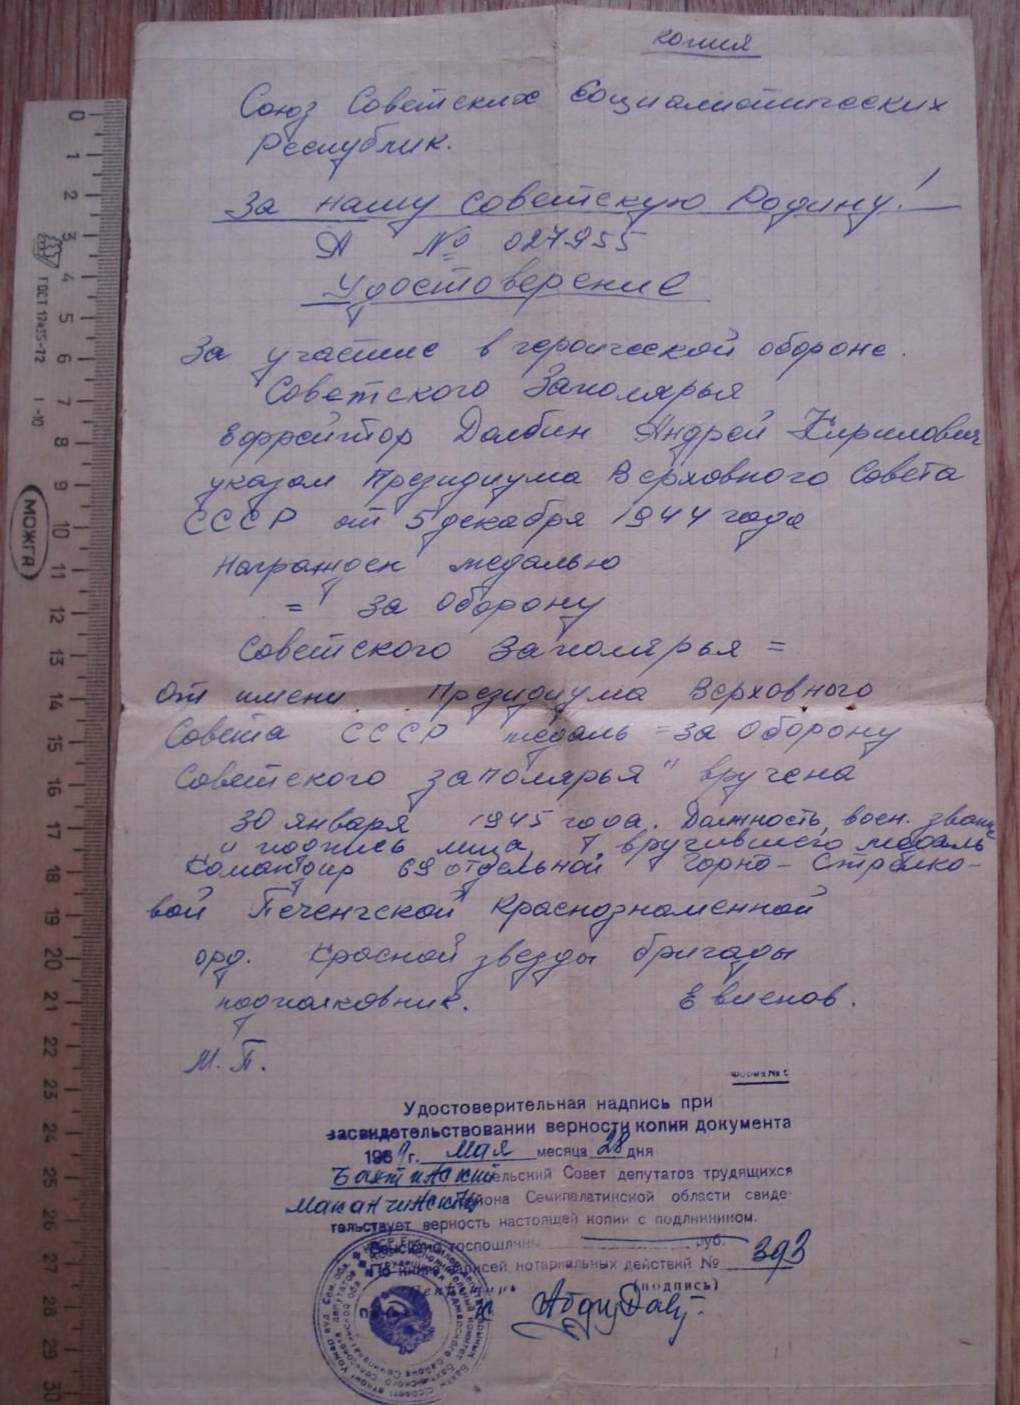 копия
Союз Советских Социалистических
Республик.
За нашу Советскую Родину!
А № 027955
Удостоверение
За участие в героической обороне.
Советского Заполярья
Ефрейтор Долбин Андрей Кирилович
указом Президиума Верховного Совета
СССР от 5 декабря 1944 года
награжден медалью
= За оборону
Советского Заполярья =
От имени Президиума Верховного
Совета СССР медаль = за оборону
Советского заполярья" вручена
30 января 1945 года. Должность, воен. звание
и подпись лица, вручившего медаль
Командир 69 отдельной Горно-Стрелко-
вой Печенгской Краснознаменной
орд. Красной звезды бригады
подполковник.
М.П.
Форма № 5
Удостоверительная надпись при
засвидетельствовании верности копии документа
196 г. мая месяца 28 дня
Бахтинский сельский Совет депутатов трудящихся
Маканчинского района Семипалатинской области свиде-
тельствует верность настоящей копии с подлинником.
Взыскано госпошлины руб.
По книге записей нотариальных действий № 393
(подпись)
0
1
2
3
4
5
6
7
8
9
10
11
12
13
14
15
16
17
18
19
20
21
22
23
24
25
26
27
28
29
30
ГОСТ 17435-72
1-10
МОЖГА